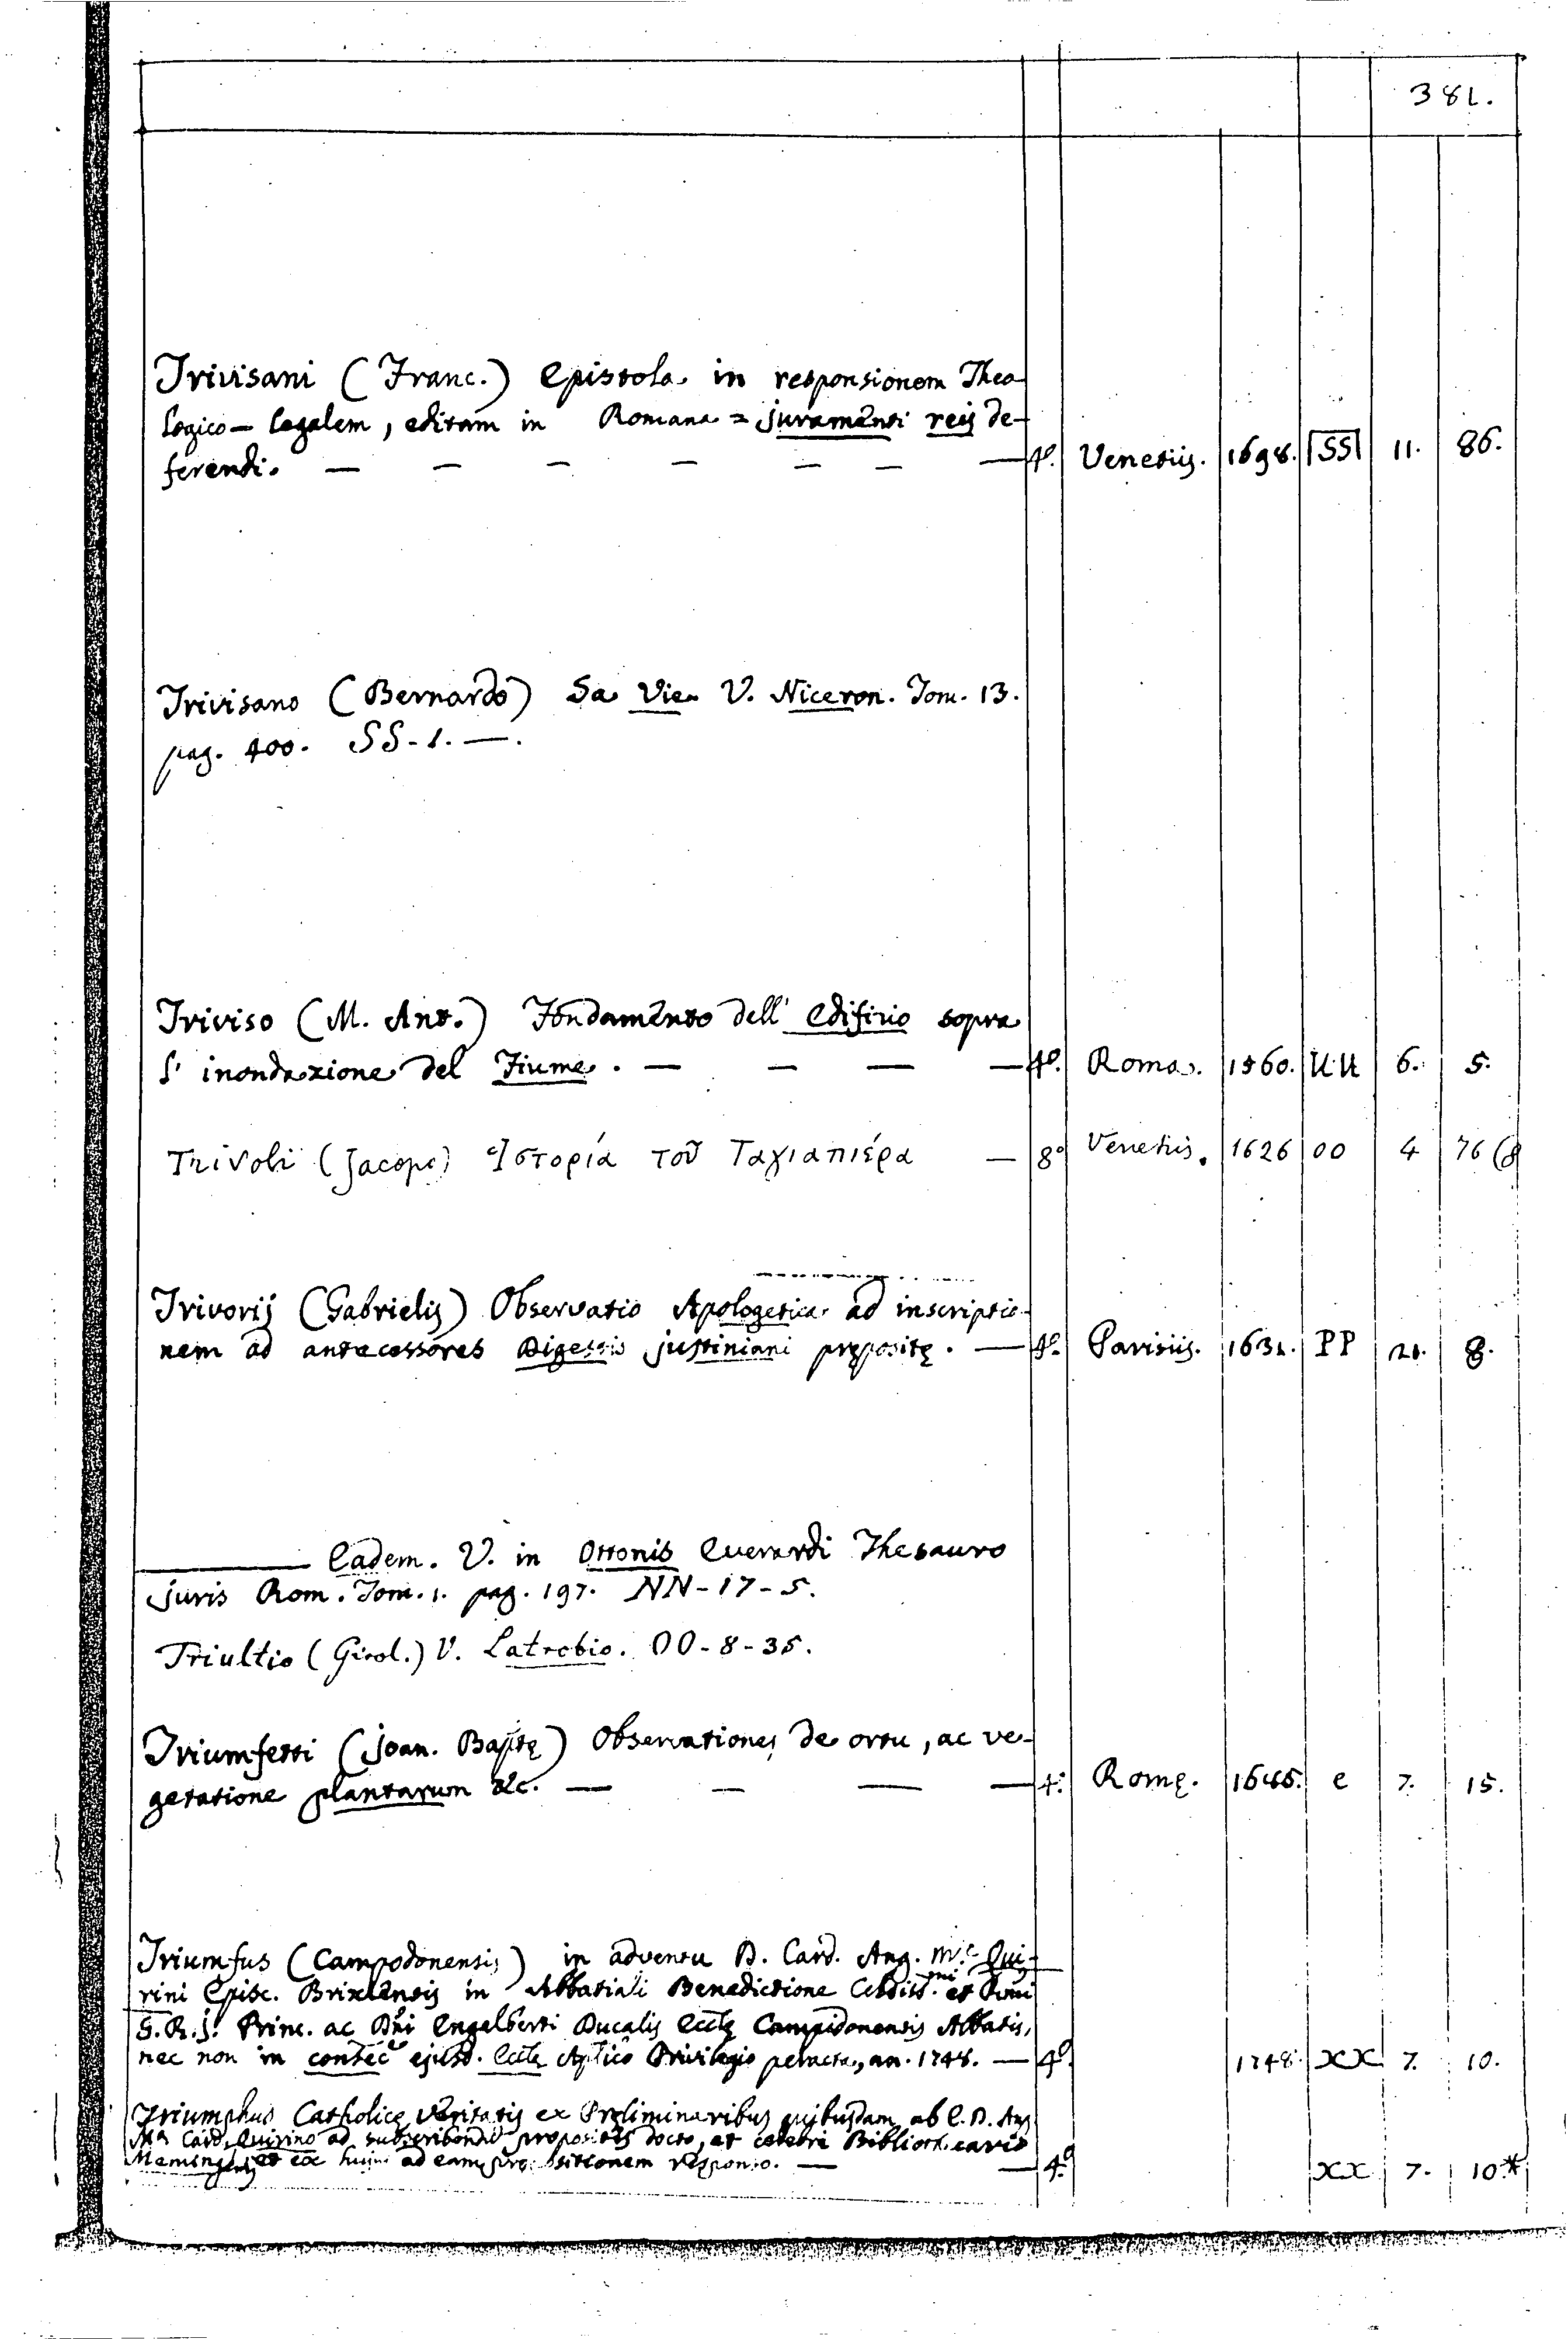 381.
Trivisani (Franc.) Epistola in responsionem Theo-
logico-legalem, editam in Romana = juramēnti reis de-
ferendi. — — — — — — — 4º. Venetiis. 1698. SS 11. 86.
Trivisano (Bernardo) Sa Vie. V. Niceron. Tom. 13.
pag. 400. SS-1. —.
Triviso (M. Ant.) Fondamēnto dell' edifizio sopra
l' inondazione del Fiume. — — — — 4º. Roma. 1560. UU 6. 5.
Trivoli (Jacopo) Ἱστορία τοῦ Ταγιαπιέρα — 8º Venetiis. 1626 OO 4 76 (8
Trivorij (Gabrielis) Observatio Apologetica ad inscriptio-
nem ad antecessores Digestis justiniani pręposite. — 4º. Parisiis. 1631. PP 21. 8.
——— Eadem. V. in Ottonis Everardi Thesauro
juris Rom. Tom. 1. pag. 197. NN-17-5.
Triultio (Girol.) V. Latrobio. OO-8-35.
Triumfetti (joan. Baptę) Observationes de ortu, ac ve-
getatione plantarum &c. — — — — 4º Romę. e 7. 15.
Triumfus (Campodonensis) in adventu D. Card. Ang. Mᵉ Qui-
rini Episc. Brixiensis in Abbatiali Benedictione et
S.R.J. Princ. ac Dn̄i Engelberti Ducalis Eccl̄ę Campidonensis Abbatis,
nec non in consec ejusd. Eccl̄ę Aplico Privilegio peracta, an. 1748. — 4º 1748. XX 7. 10.
Triumphus Catholicę Veritatis ex Pręliminaribus quibusdam ab E. D. Ang.
Ma Card. Quirino ad subscribendū propositis docto, et celebri Bibliothecario
et ex hujus ad eam propositionem responso. — — 4º XX 7. 10.*